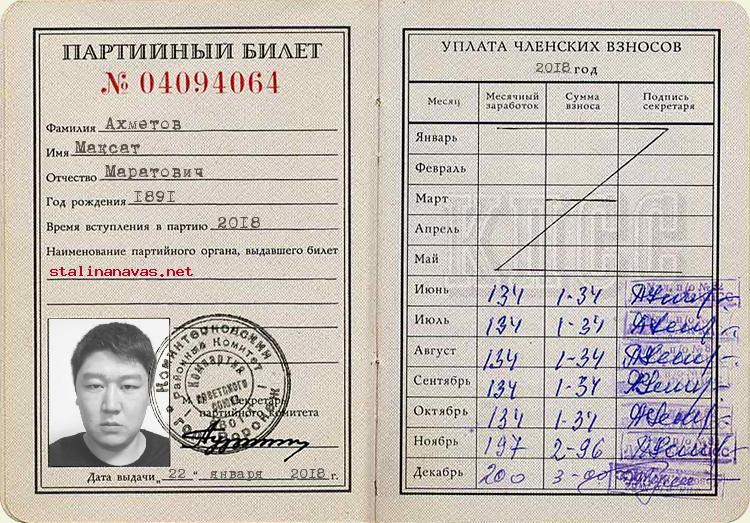 ПАРТИЙНЫЙ БИЛЕТ
№ 04094064
Фамилия Ахметов
Имя Максат
Отчество Маратович
Год рождения 1891
Время вступления в партию 2018
Наименование партийного органа, выдавшего билет
stalinanavas.net
М. Секретарь
партийного комитета
Дата выдачи „22“ января 2018 г.
УПЛАТА ЧЛЕНСКИХ ВЗНОСОВ
2018 год
Месяц Месячный заработок Сумма взноса Подпись секретаря
Январь
Февраль
Март
Апрель
Май
КПСС
Июнь 134 1-34
Июль 134 1-34
Август 134 1-34
Сентябрь 134 1-34
Октябрь 134 1-34
Ноябрь 197 2-96
Декабрь 200
Районный Комитет
Компартия
Советского
Союза